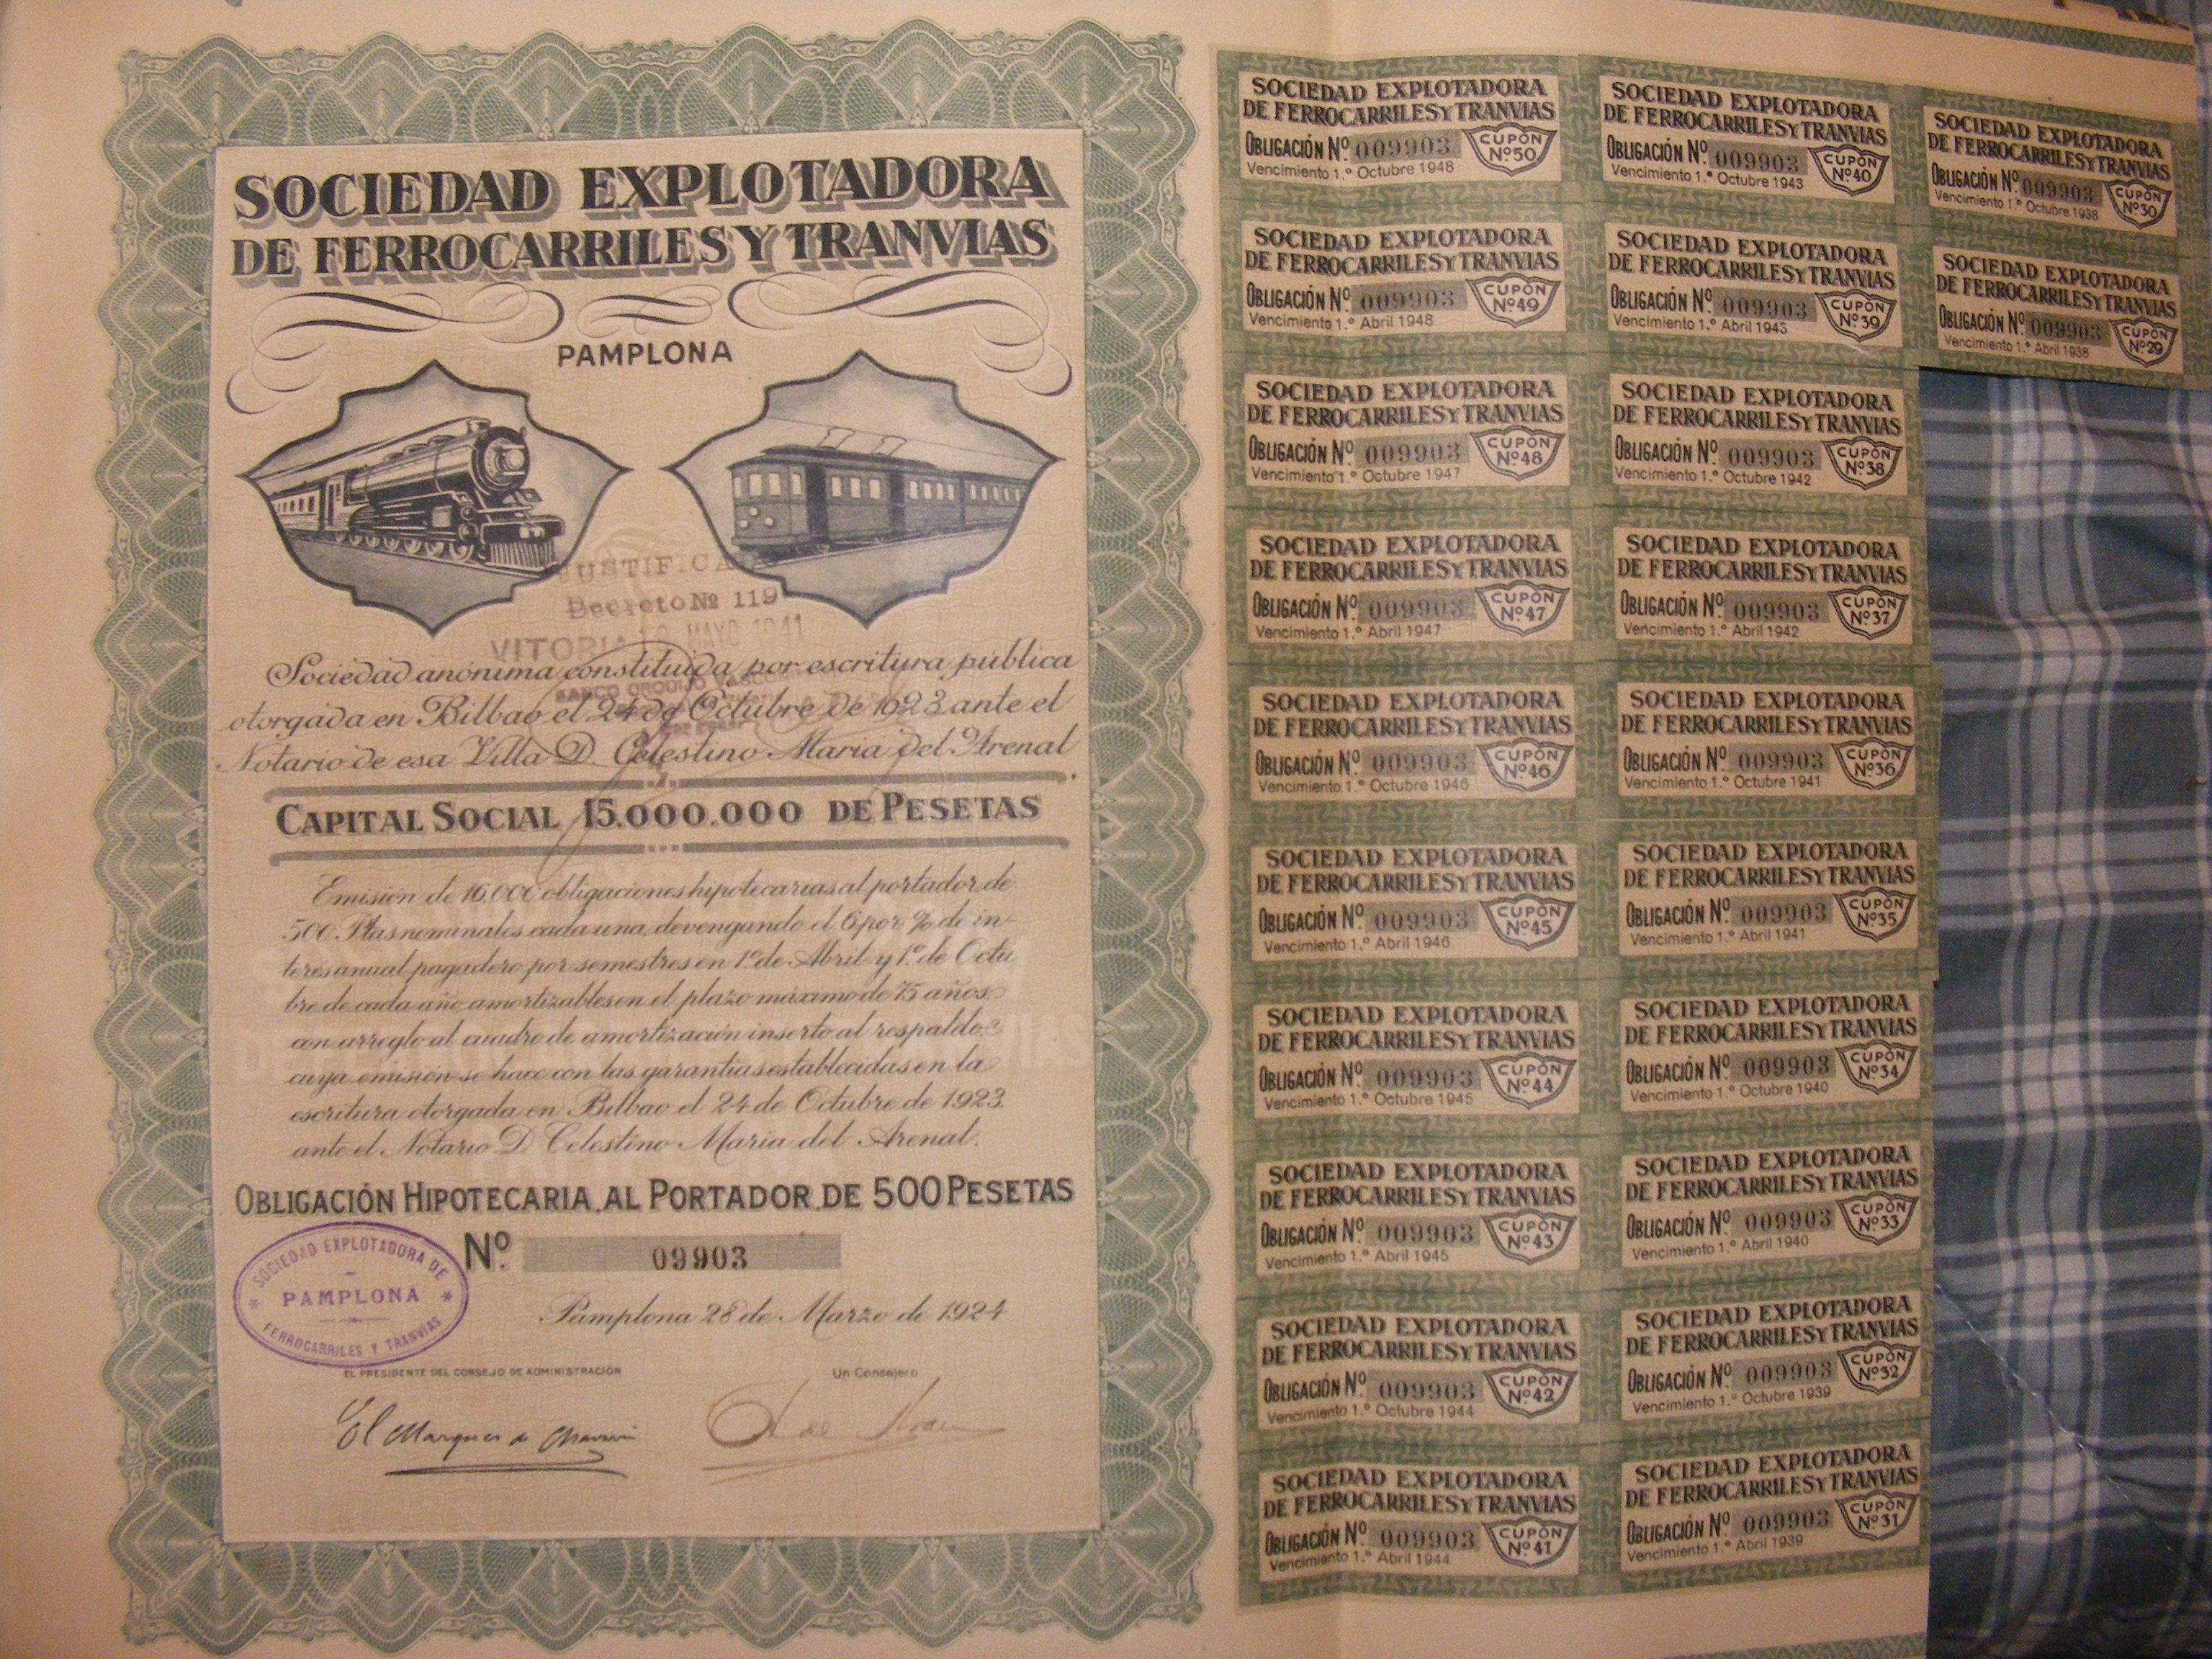 SOCIEDAD EXPLOTADORA
DE FERROCARRILES Y TRANVIAS
PAMPLONA
JUSTIFICA
Decreto Nº 119
VITORIA MAYO 1941
Sociedad anónima constituída por escritura pública
otorgada en Bilbao el 24 de Octubre de 1923 ante el
Notario de esa Villa D. Celestino María del Arenal
CAPITAL SOCIAL 15.000.000 DE PESETAS
Emisión de 16.000 obligaciones hipotecarias al portador de
500 Ptas nominales cada una, devengando el 6 por % de in-
terés anual pagadero por semestres en 1º de Abril y 1º de Octu
bre de cada año amortizables en el plazo máximo de 75 años
con arreglo al cuadro de amortización inserto al respaldo
cuya emisión se hace con las garantías establecidas en la
escritura otorgada en Bilbao el 24 de Octubre de 1923
ante el Notario D. Celestino María del Arenal.
OBLIGACIÓN HIPOTECARIA AL PORTADOR DE 500 PESETAS
Nº 09903
SOCIEDAD EXPLOTADORA DE
* PAMPLONA *
FERROCARRILES Y TRANVIAS
Pamplona 28 de Marzo de 1924
EL PRESIDENTE DEL CONSEJO DE ADMINISTRACIÓN
Un Consejero
El Marques de
SOCIEDAD EXPLOTADORA
DE FERROCARRILES Y TRANVIAS
OBLIGACIÓN Nº 009903 CUPÓN Nº 50
Vencimiento 1.º Octubre 1948
SOCIEDAD EXPLOTADORA
DE FERROCARRILES Y TRANVIAS
OBLIGACIÓN Nº 009903 CUPÓN Nº 49
Vencimiento 1.º Abril 1948
SOCIEDAD EXPLOTADORA
DE FERROCARRILES Y TRANVIAS
OBLIGACIÓN Nº 009903 CUPÓN Nº 48
Vencimiento 1.º Octubre 1947
SOCIEDAD EXPLOTADORA
DE FERROCARRILES Y TRANVIAS
OBLIGACIÓN Nº 009903 CUPÓN Nº 47
Vencimiento 1.º Abril 1947
SOCIEDAD EXPLOTADORA
DE FERROCARRILES Y TRANVIAS
OBLIGACIÓN Nº 009903 CUPÓN Nº 46
Vencimiento 1.º Octubre 1946
SOCIEDAD EXPLOTADORA
DE FERROCARRILES Y TRANVIAS
OBLIGACIÓN Nº 009903 CUPÓN Nº 45
Vencimiento 1.º Abril 1946
SOCIEDAD EXPLOTADORA
DE FERROCARRILES Y TRANVIAS
OBLIGACIÓN Nº 009903 CUPÓN Nº 44
Vencimiento 1.º Octubre 1945
SOCIEDAD EXPLOTADORA
DE FERROCARRILES Y TRANVIAS
OBLIGACIÓN Nº 009903 CUPÓN Nº 43
Vencimiento 1.º Abril 1945
SOCIEDAD EXPLOTADORA
DE FERROCARRILES Y TRANVIAS
OBLIGACIÓN Nº 009903 CUPÓN Nº 42
Vencimiento 1.º Octubre 1944
SOCIEDAD EXPLOTADORA
DE FERROCARRILES Y TRANVIAS
OBLIGACIÓN Nº 009903 CUPÓN Nº 41
Vencimiento 1.º Abril 1944
SOCIEDAD EXPLOTADORA
DE FERROCARRILES Y TRANVIAS
OBLIGACIÓN Nº 009903 CUPÓN Nº 40
Vencimiento 1.º Octubre 1943
SOCIEDAD EXPLOTADORA
DE FERROCARRILES Y TRANVIAS
OBLIGACIÓN Nº 009903 CUPÓN Nº 39
Vencimiento 1.º Abril 1943
SOCIEDAD EXPLOTADORA
DE FERROCARRILES Y TRANVIAS
OBLIGACIÓN Nº 009903 CUPÓN Nº 38
Vencimiento 1.º Octubre 1942
SOCIEDAD EXPLOTADORA
DE FERROCARRILES Y TRANVIAS
OBLIGACIÓN Nº 009903 CUPÓN Nº 37
Vencimiento 1.º Abril 1942
SOCIEDAD EXPLOTADORA
DE FERROCARRILES Y TRANVIAS
OBLIGACIÓN Nº 009903 CUPÓN Nº 36
Vencimiento 1.º Octubre 1941
SOCIEDAD EXPLOTADORA
DE FERROCARRILES Y TRANVIAS
OBLIGACIÓN Nº 009903 CUPÓN Nº 35
Vencimiento 1.º Abril 1941
SOCIEDAD EXPLOTADORA
DE FERROCARRILES Y TRANVIAS
OBLIGACIÓN Nº 009903 CUPÓN Nº 34
Vencimiento 1.º Octubre 1940
SOCIEDAD EXPLOTADORA
DE FERROCARRILES Y TRANVIAS
OBLIGACIÓN Nº 009903 CUPÓN Nº 33
Vencimiento 1.º Abril 1940
SOCIEDAD EXPLOTADORA
DE FERROCARRILES Y TRANVIAS
OBLIGACIÓN Nº 009903 CUPÓN Nº 32
Vencimiento 1.º Octubre 1939
SOCIEDAD EXPLOTADORA
DE FERROCARRILES Y TRANVIAS
OBLIGACIÓN Nº 009903 CUPÓN Nº 31
Vencimiento 1.º Abril 1939
SOCIEDAD EXPLOTADORA
DE FERROCARRILES Y TRANVIAS
OBLIGACIÓN Nº 009903 CUPÓN Nº 30
Vencimiento 1.º Octubre 1938
SOCIEDAD EXPLOTADORA
DE FERROCARRILES Y TRANVIAS
OBLIGACIÓN Nº 009903 CUPÓN Nº 29
Vencimiento 1.º Abril 1938